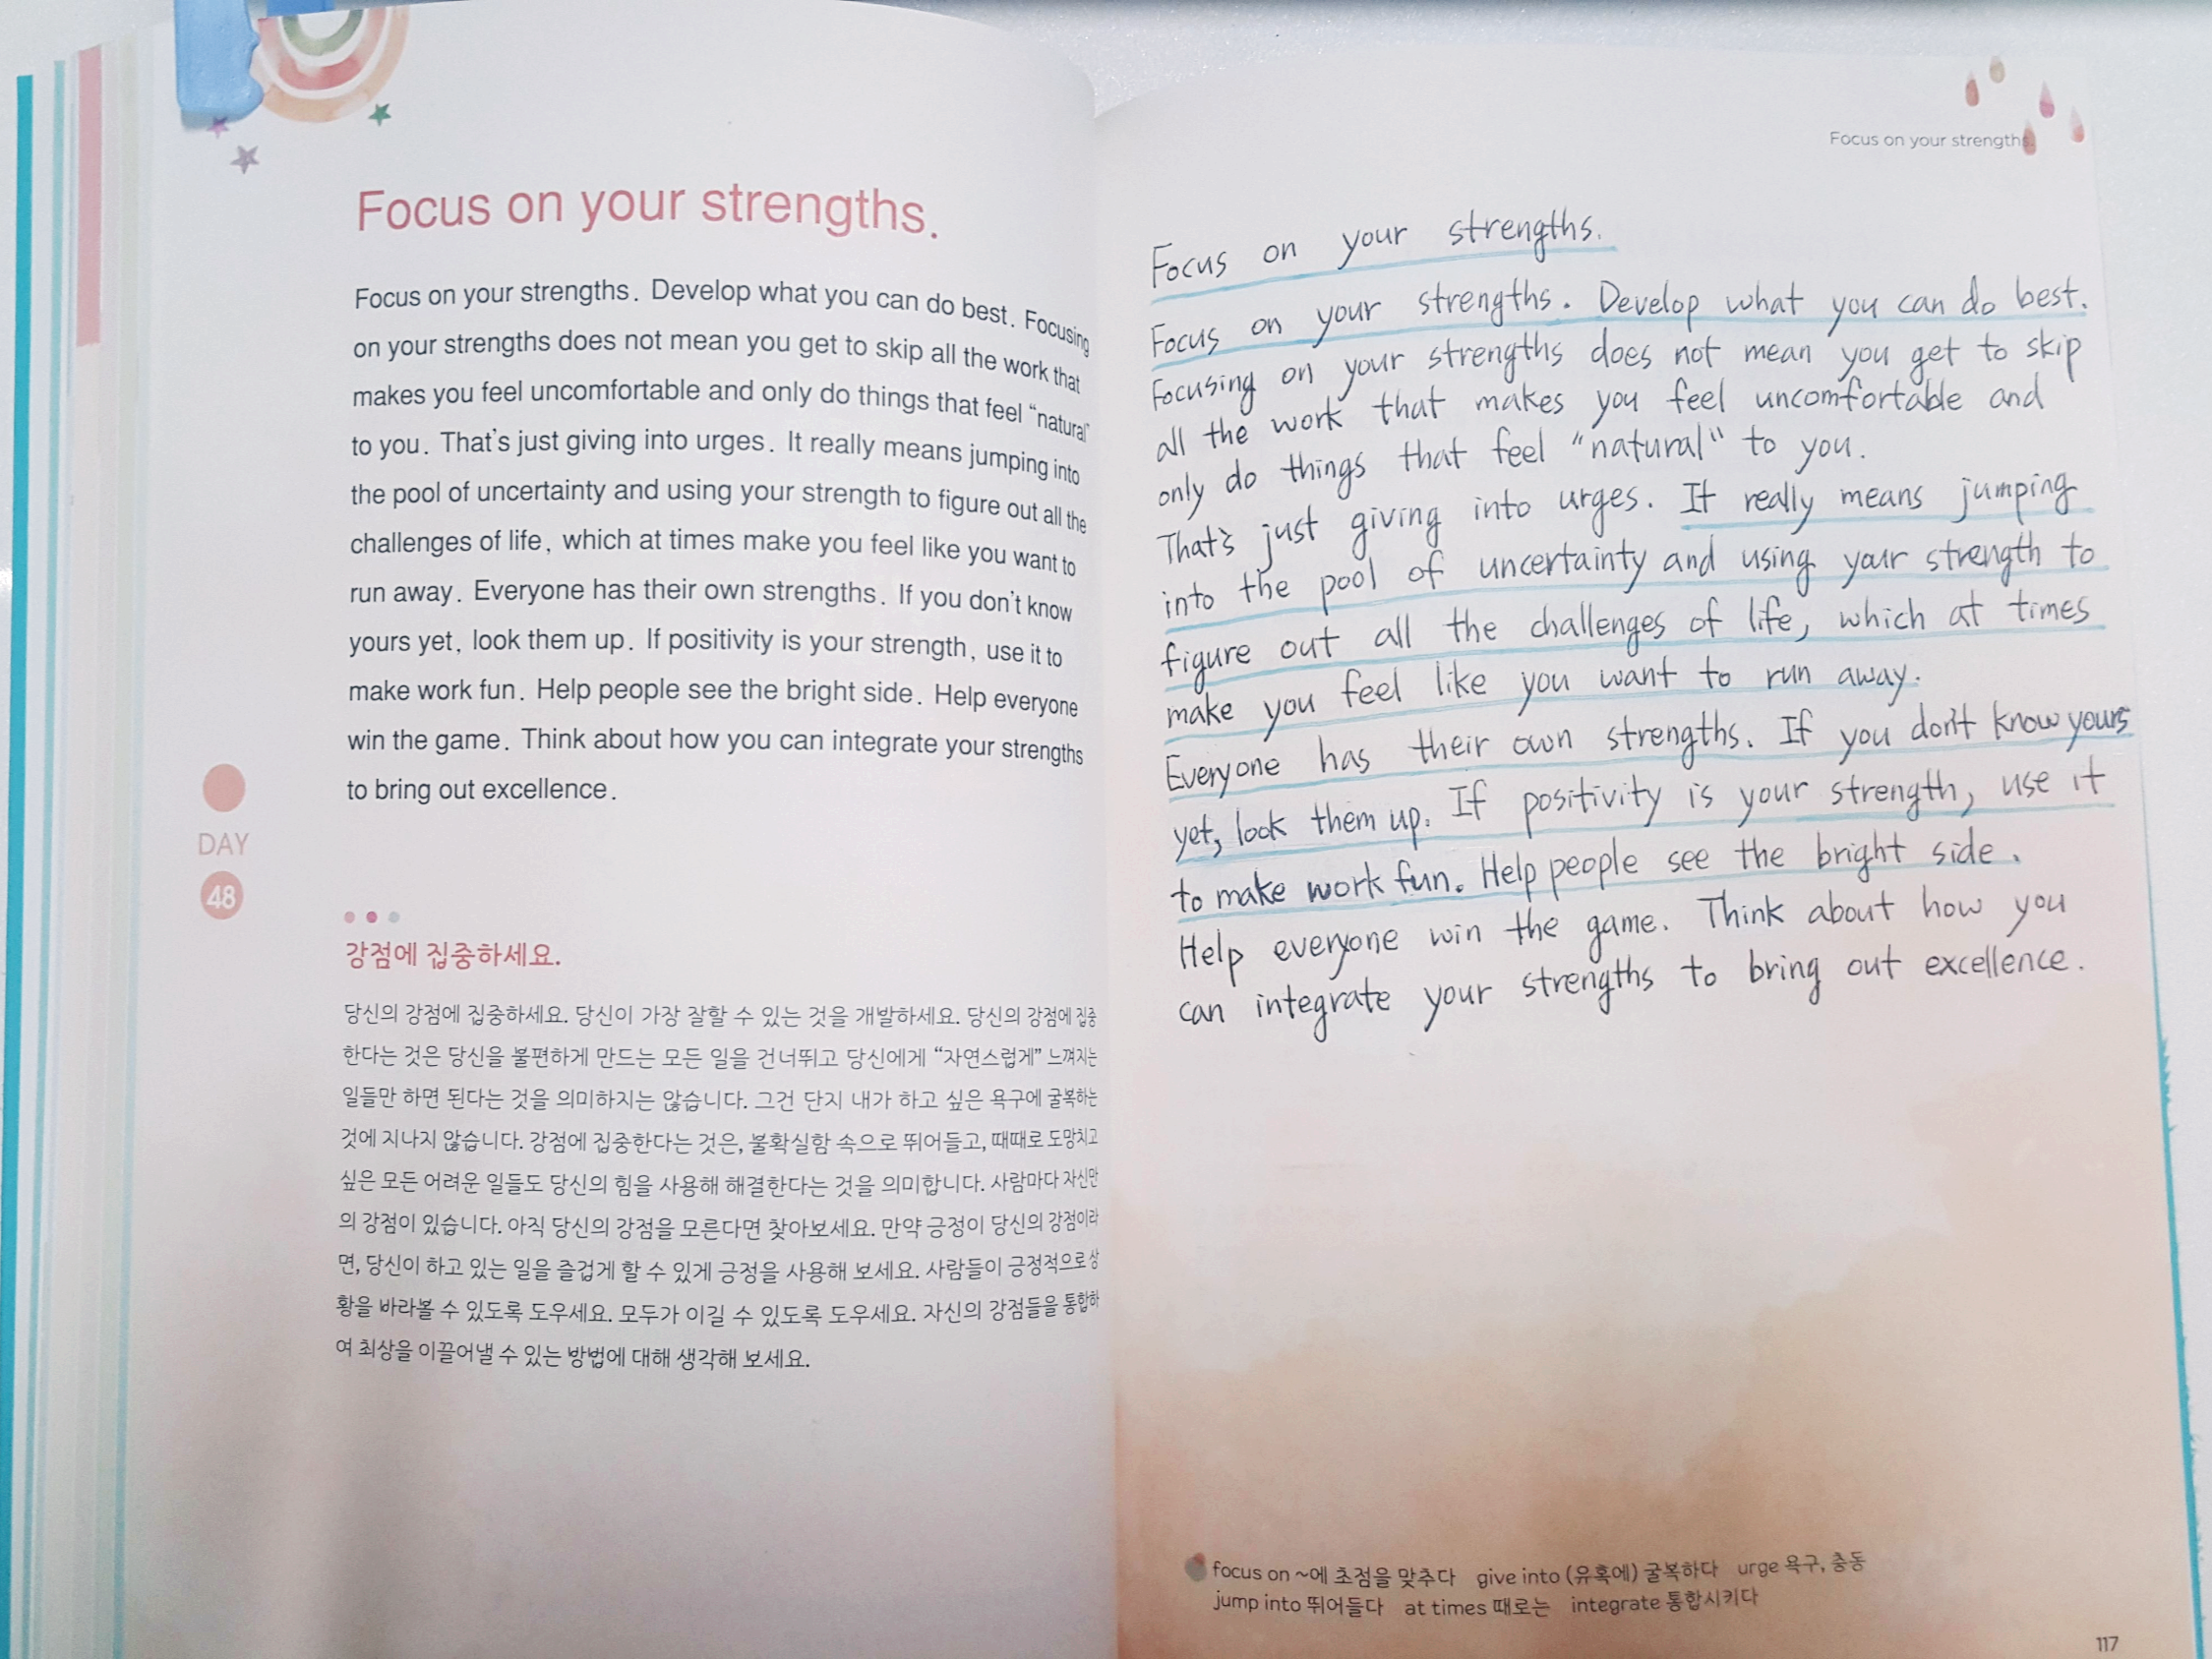 Focus on your strengths.
Focus on your strengths. Develop what you can do best. Focusing
on your strengths does not mean you get to skip all the work that
makes you feel uncomfortable and only do things that feel “natural”
to you. That's just giving into urges. It really means jumping into
the pool of uncertainty and using your strength to figure out all the
challenges of life, which at times make you feel like you want to
run away. Everyone has their own strengths. If you don't know
yours yet, look them up. If positivity is your strength, use it to
make work fun. Help people see the bright side. Help everyone
win the game. Think about how you can integrate your strengths
to bring out excellence.
DAY
48
강점에 집중하세요.
당신의 강점에 집중하세요. 당신이 가장 잘할 수 있는 것을 개발하세요. 당신의 강점에 집중
한다는 것은 당신을 불편하게 만드는 모든 일을 건너뛰고 당신에게 “자연스럽게” 느껴지는
일들만 하면 된다는 것을 의미하지는 않습니다. 그건 단지 내가 하고 싶은 욕구에 굴복하는
것에 지나지 않습니다. 강점에 집중한다는 것은, 불확실함 속으로 뛰어들고, 때때로 도망치고
싶은 모든 어려운 일들도 당신의 힘을 사용해 해결한다는 것을 의미합니다. 사람마다 자신만
의 강점이 있습니다. 아직 당신의 강점을 모른다면 찾아보세요. 만약 긍정이 당신의 강점이라
면, 당신이 하고 있는 일을 즐겁게 할 수 있게 긍정을 사용해 보세요. 사람들이 긍정적으로 상
황을 바라볼 수 있도록 도우세요. 모두가 이길 수 있도록 도우세요. 자신의 강점들을 통합하
여 최상을 이끌어낼 수 있는 방법에 대해 생각해 보세요.
Focus on your strengths.
Focus on your strengths.
Focus on your strengths. Develop what you can do best.
Focusing on your strengths does not mean you get to skip
all the work that makes you feel uncomfortable and
only do things that feel “natural” to you.
That's just giving into urges. It really means jumping
into the pool of uncertainty and using your strength to
figure out all the challenges of life, which at times
make you feel like you want to run away.
Everyone has their own strengths. If you don't know yours
yet, look them up. If positivity is your strength, use it
to make work fun. Help people see the bright side.
Help everyone win the game. Think about how you
can integrate your strengths to bring out excellence.
focus on ~에 초점을 맞추다 give into (유혹에) 굴복하다 urge 욕구, 충동
jump into 뛰어들다 at times 때로는 integrate 통합시키다
117